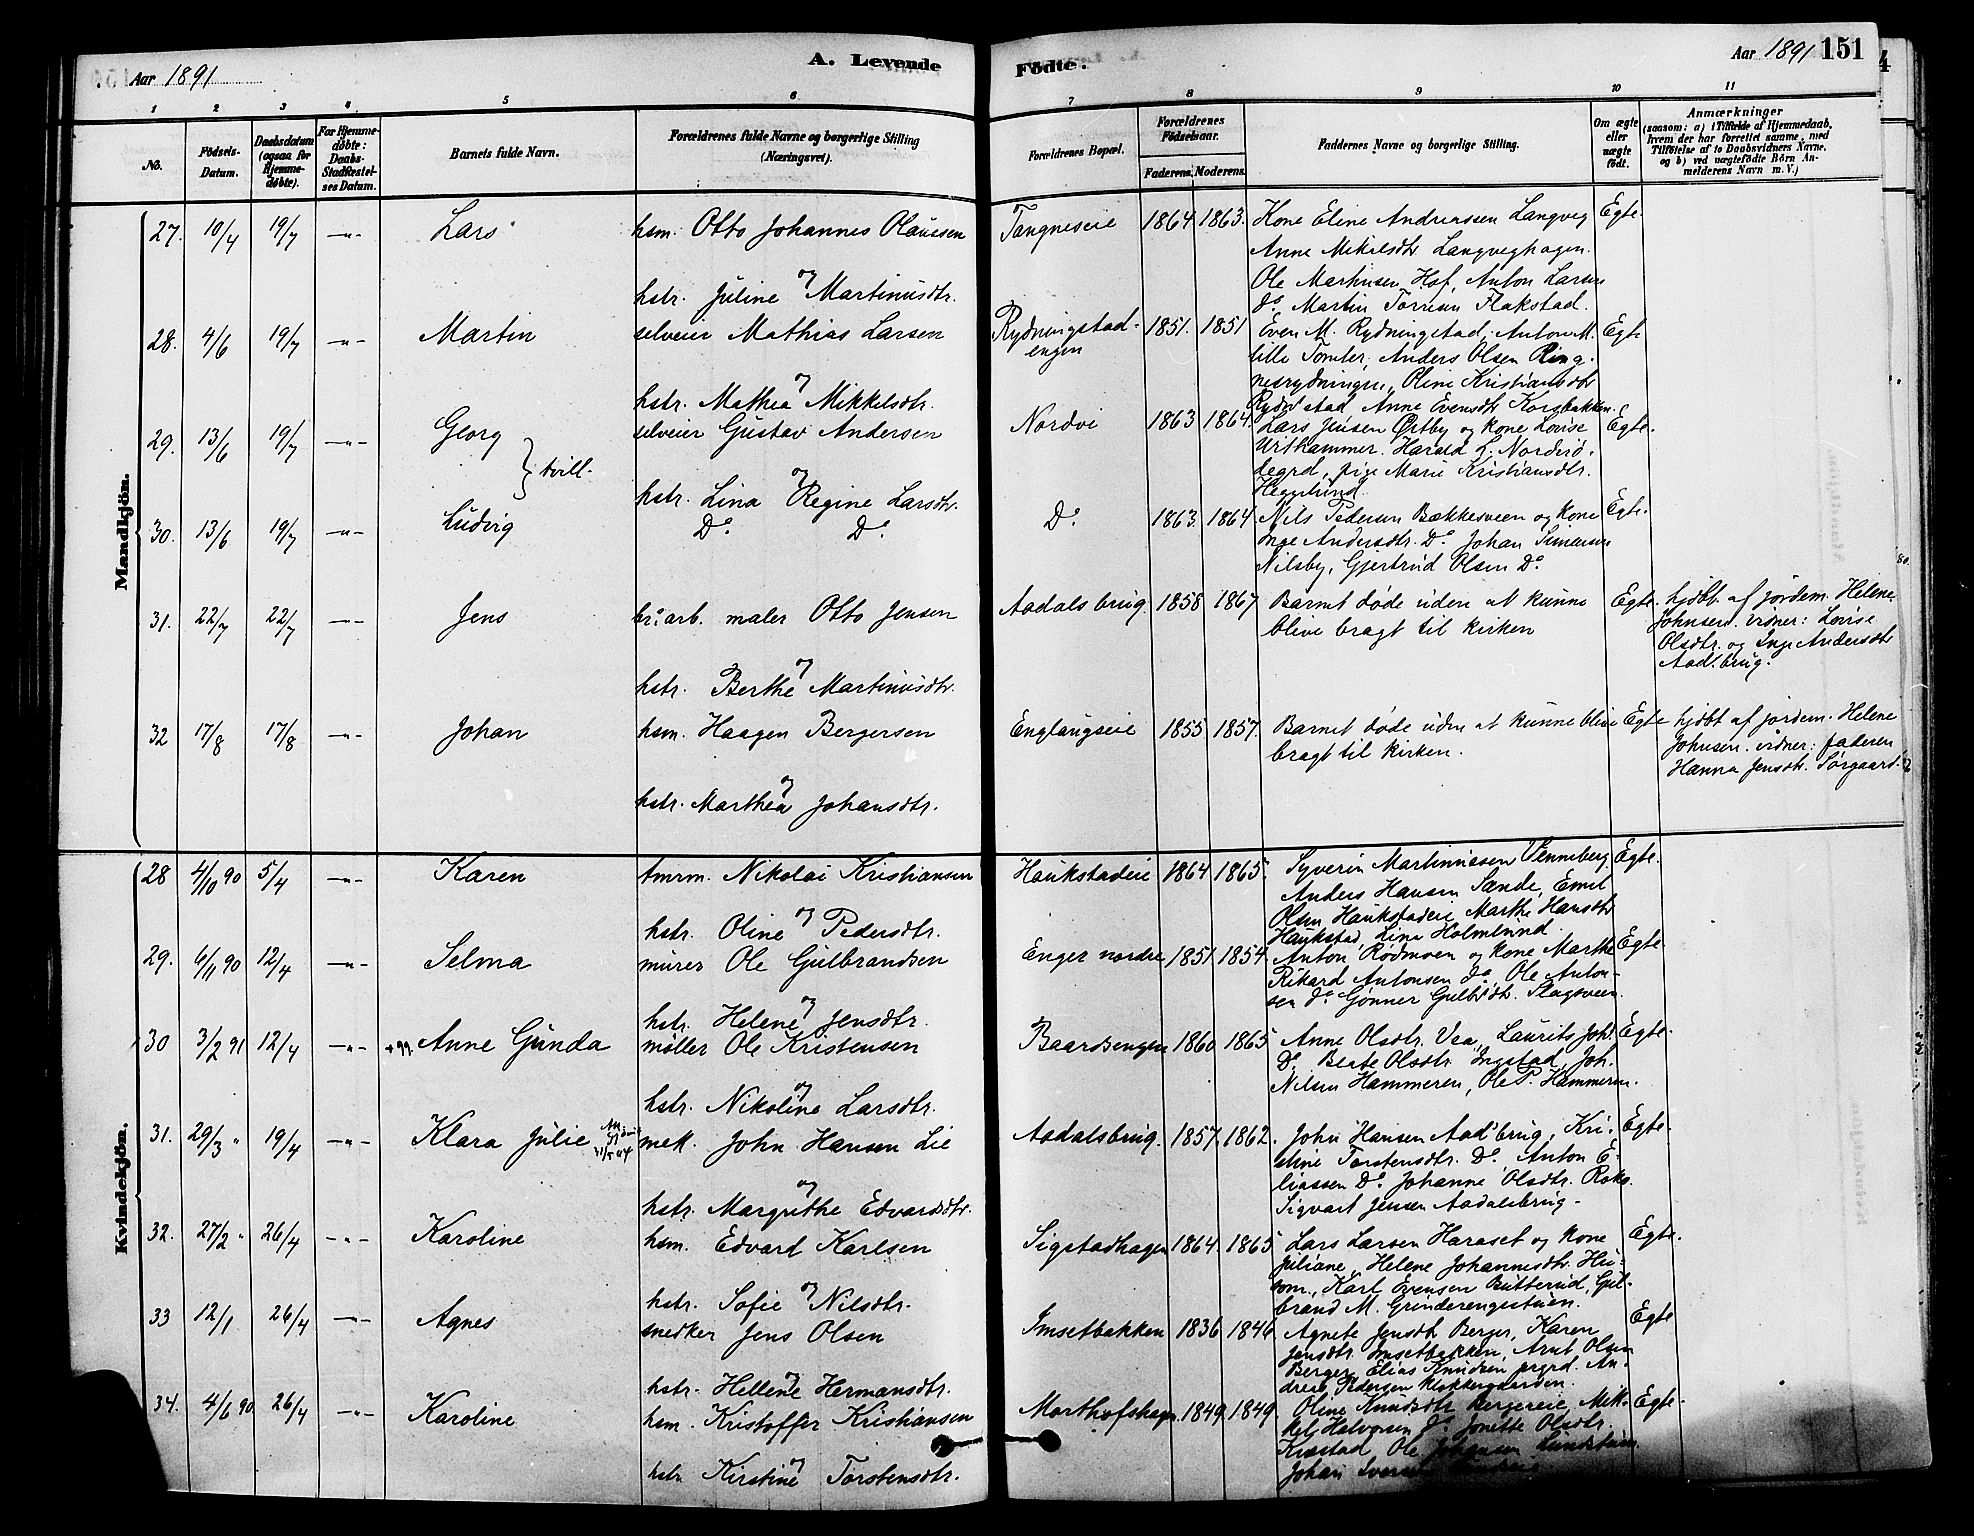 Aar 1891
A. Levende
Födte.
Aar 1891
151
1 2 3 4 5 6 7 8 9 10 11
No.
Födsels-Datum.
Daabsdatum (ogsaa for Hjemme-døbte).
For Hjemme-døbte: Daabs-Stadfæstel-ses Datum.
Barnets fulde Navn.
Forældrenes fulde Navne og borgerlige Stilling (Næringsvei).
Forældrenes Bopæl.
Forældrenes Födselsaar.
Faderens. Moderens.
Faddernes Navne og borgerlige Stilling.
Om ægte eller uægte født.
Anmærkninger
(saasom: a) i Tilfælde af Hjemmedaab,
hvem der har forrettet samme, med
Tilföielse af to Daabsvidners Navne,
og b) ved uægtefödte Börn An-
melderens Navn m. V.)
Mandkjön.
27. 10/4 19/7 —„— Lars hsm. Otto Johannes Olausen Tangneseie 1864 1863. Kone Eline Andreassen Langveg Egte.
Anne Mikelsdtr Langveghagen.
og Ole Martinsen Hof, Anton Larsen
hstr. Juline Martinusdtr. Do Martin Flakstad.
28. 4/6 19/7 —„— Martin selveier Mathias Larsen Rydningstad-engen 1851. 1851 Even M. Rydningstad, Anton M. Egte
lille Tomter, Anders Olsen Ring-
og nesrydningen, Oline Kristiansdtr
hstr. Mathea Mikkelsdtr. Rydstad Anne Evensdtr Korsbakken.
29. 13/6 19/7 —„— Georg } tvill. selveier Gustav Andersen Nordvi 1863 1864. Lars Jensen Ørtby og kone Lovise Egte.
Harald L. Nordsö-
og degrd, pige Marie Kristiansdtr.
hstr. Lina Regine Larsdtr. Heggelund.
30. 13/6 19/7 —„— Ludvig Do Do Do 1863. 1864 Nils Pedersen Bækkesveen og kone Egte.
Inge Andersdtr. Do Johan Simensen
Nilsby, Gjertrud Olsen Do
31. 22/7 22/7 —„— Jens br. arb. maler Otto Jensen Aadals brug. 1858 1867 Barnet døde uden at kunne Egte. hjdbt. af jordem. Helene
blive bragt til kirken Johnsen. vidner: Lovise
Olsdtr. og Inge Andersdtr
og Aadl.brug.
hstr. Berthe Martinusdtr.
32 17/8 17/8 —„— Johan hsm. Haagen Bergersen Englaugseie 1855 1857. Barnet døde uden at kunne blive Egte hjdbt af jordem. Helene
bragt til kirken. Johnsen. vidner: faderen
og Hanna Jensdtr. Sørgaard.
hstr. Marthea Johansdtr.
Kvindekjön.
28 4/10 90 5/4 —„— Karen tmrm. Nikolai Kristiansen Haukstadeie 1864 1865. Syverin Martiniusen Venneberg Egte.
Anders Hansen Sande, Emil
og Olsen Haukstadeie Marthe Hansdtr
hstr. Oline Pedersdtr. Haukstad Lina Holmlund.
29. 6/11 90 12/4 —„— Selma murer Ole Gulbrandsen Enger nordre 1851 1854 Anton Rødmoen og kone Marthe Egte.
Rikard Antonsen do, Ole Anton-
og sen do Gønner Gulbrdtr. Slagsveen.
hstr. Helene Jensdtr.
30 3/2 91 12/4 —„— Anne Gunda møller Ole Kristensen Baardsengen 1860 1865 Anne Olsdtr. Vea, Laurits Joh. Egte.
Do Beate Olsdtr. Ingstad, Joh.
og Nilsen Hammeren, Ole P. Hammeren.
hstr. Nikoline Larsdtr.
31. 29/3 „ 19/4 —„— Klara Julie mek. John Hansen Lie Aadalsbrug. 1857 1862. John Hansen Aadsbrug, Kri- Egte.
stine Torstensdtr. Do Anton E-
og liassen Do Johanne Olsdtr. Roko.
hstr. Margrethe Edvardsdtr. Sigvart Jensen Aadalsbrug.
32. 27/2 „ 26/4 —„— Karoline hsm. Edvard Karlsen Sigstadhagen 1864. 1865 Lars Larsen Haraset og kone Egte.
Juliane, Helene Johannesdtr. Hu-
og som, Karl Evensen Butterud, Gul-
hstr. Sofie Nilsdtr. brand M. Grinderengestuen.
33 12/1 26/4 —„— Agnes snedker Jens Olsen Imsetbakken 1836 1846 Agnete Jensdtr Berger, Karen Egte
Jensdtr. Imsetbakken, Arnt Olsen
og Berger Elias Knudsen prgrd. An-
hstr. Hellene Hermansdtr. dreas Pedersen Klokkergaarden.
34. 4/6 90 26/4 —„— Karoline hsm. Kristoffer Kristiansen Morthofshagen 1849. 1849. Oline Amundsdtr Bergereie, Mik- Egte.
kel Halvorsen Do Jonette Olsdtr.
og Kvæstad, Ole Johansen
hstr. Kirstine Torstensdtr. Johan